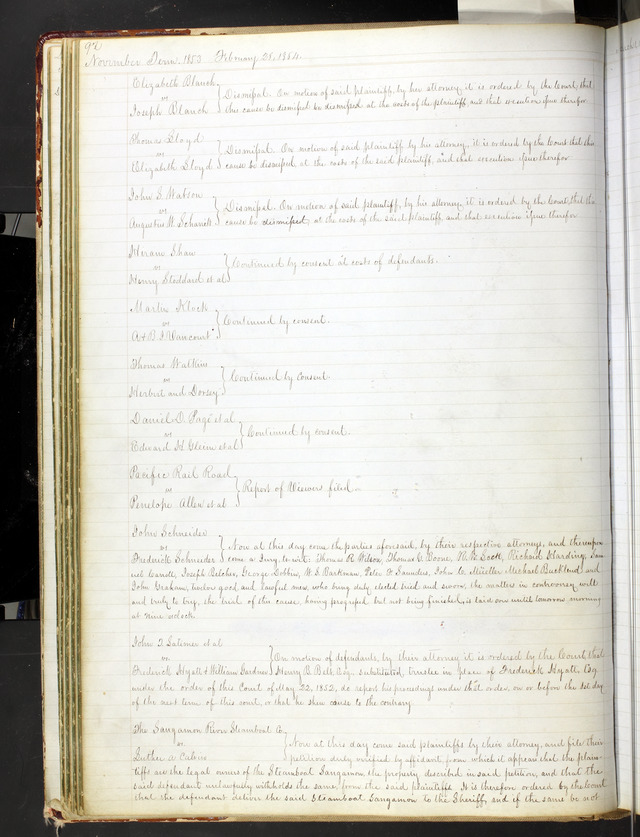 92
November Term 1853 February 28, 1854.
Elizabeth Blanch
vs
Joseph Blanch
Dismissal. On motion of said plaintiff, by her attorney, it is ordered by the Court, that
this cause be dismissed be dismissed at the costs of the plaintiff, and that execution issue therefor
Thomas Lloyd
vs
Elizabeth Lloyd
Dismissal. On motion of said plaintiff by his attorney, it is ordered by the Court that this
cause be dismissed, at the costs of the said plaintiff, and that execution issue therefor
John S. Watson
vs
Augustus W. Schardt
Dismissal. On motion of said plaintiff, by his attorney it is ordered by the Court, that the
cause be dismissed, at the costs of the said plaintiff and that execution issue therefor
Hiram Shaw
vs
Henry Stoddard et al
Continued by consent at costs of defendants.
Martin Klock
vs
A & B. J. Vancourt
Continued by consent.
Thomas Watkins
vs
Herbert and Dorsey
Continued by consent
Daniel D. Page et al
vs
Edward H. Gleim et al
Continued by consent.
Pacific Rail Road
vs
Penelope Allen et al
Report of Viewers filed
John Schneider
vs
Fredrick Schneider
Now at this day come the parties aforesaid, by their respective attorneys, and thereupon
come a Jury, to wit: Thomas R. Wilson, Thomas C. Boone, W. B. Scott, Richard Harding, Sam
uel Joseph Belcher, George Dobbin, W. S. Barkman, Peter F. Saunders, John C. Mueller Michael Buckland and
John Graham, twelve good and lawful men, who being duly elected tried and sworn, the matters in controversy well
and truly to try, the trial of this cause, being progressed but not being finished, is laid over until tomorrow morning
at nine oclock
John T. et al
vs
Frederick Hyatt & William Gardner
On motion of defendants, by their attorney it is ordered by the Court that
Henry B. Belt, Esq. substituted trustee in place of Frederick Hyatt, Esq
under the order of this Court of May 22, 1852, do report his proceedings under that order, on or before the 1st day
of the next term of this court, or that he shew cause to the contrary
The Sangamon River Steamboat Co
vs
Luther A
Now at this day come said plaintiffs by their attorney, and file their
petition duly verified by affidavit, from which it appears that the plain-
tiffs are the legal owners of the Steamboat Sangamon, the property described in said petition, and that the
said defendant unlawfully withholds the same, from the said plaintiffs. It is therefore ordered by the Court
that the defendant deliver the said Steamboat Sangamon to the Sheriff, and if the same be not